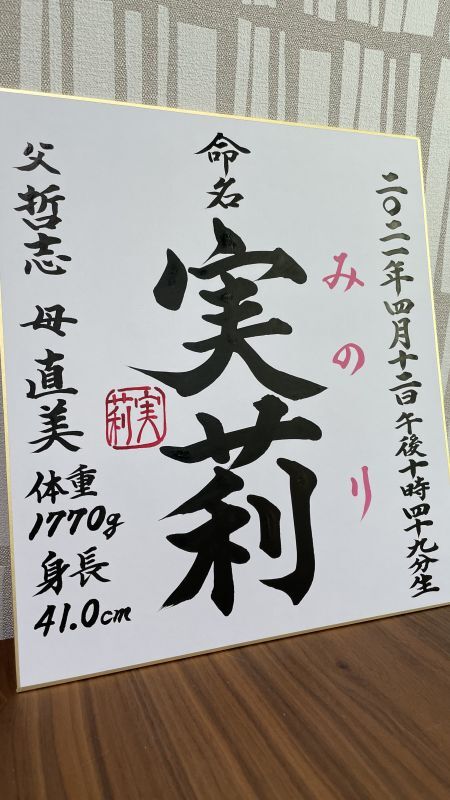 二〇二一年四月十二日午後十時四十九分生
みのり
命名
実莉
実莉
父 哲志 母 直美
体重
1770g
身長
41.0cm